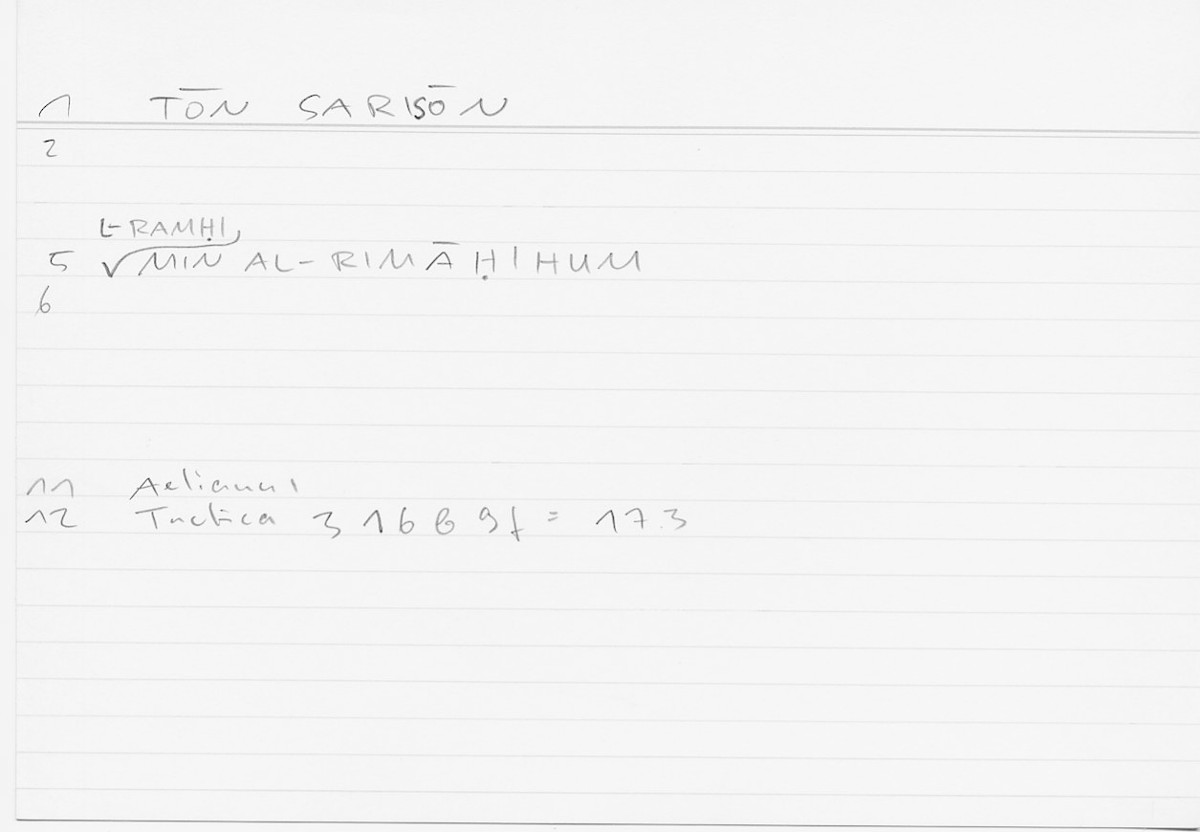 1 TŌN SARISŌN
2
L-RAMḤI
5 MIN AL-RIMĀḤIHUM
6
11 Aelianus
12 Tactica 3 16 6 9f = 17.3